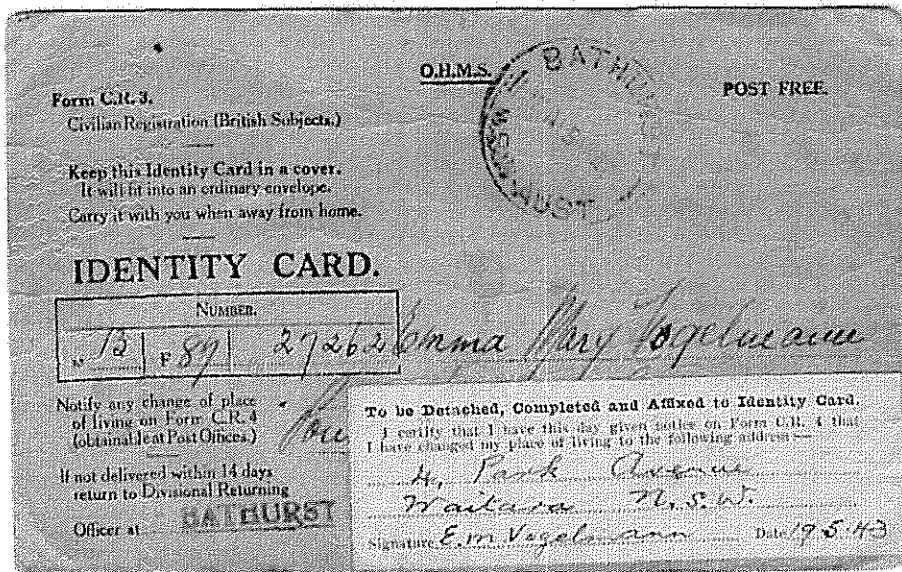 O.H.M.S.
POST FREE.
BATHU
N.S.W. AUST
Form C.R. 3.
Civilian Registration (British Subjects.)
Keep this Identity Card in a cover.
It will fit into an ordinary envelope.
Carry it with you when away from home.
IDENTITY CARD.
NUMBER.
N 12 F 89 27262
Emma Mary Vogelmann
Notify any change of place
of living on Form C.R. 4
(obtainable at Post Offices.)
If not delivered within 14 days
return to Divisional Returning
Officer at BATHURST
To be Detached, Completed and Affixed to Identity Card.
I certify that I have this day given notice on Form C.R. 4 that
I have changed my place of living to the following address:—
4, Park Avenue
Waitara N.S.W.
Signature E. M. Vogelmann Date 19.5.43